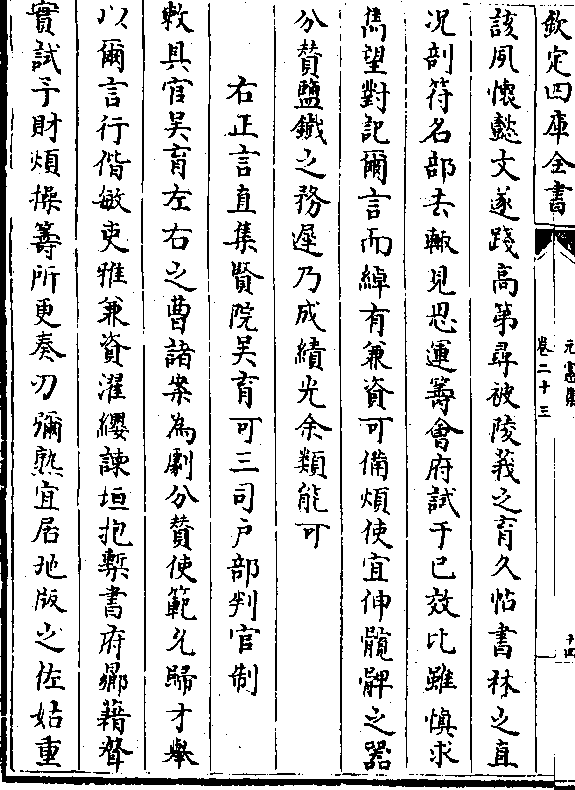 欽定四庫全書
元憲集
卷二十三
十四
該夙懷懿文遂踐高第尋被陵莪之育久帖書林之直
況剖符名部去輙見思運籌會府試于已效比雖慎求
雋望對記爾言而綽有兼資可備煩使宜伸髖髀之器
分贊鹽鐵之務遲乃成績光余類能可
右正言直集賢院吴育可三司户部判官制
敕具官吴育左右之曹諸案為劇分贊使範允歸才舉
以爾言行偕敏吏雅兼資濯纓諫垣抱槧書府鄉藉聲
實試于財煩操籌所更奏刃彌熟宜居地版之佐姑重